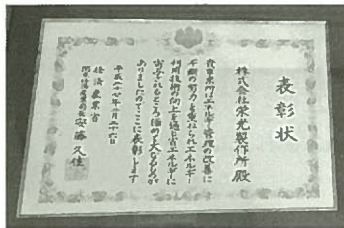 表彰状
株式会社栄光製作所殿
貴事業所はエネルギー管理の改善に
不断の努力を重ねられエネルギー
利用技術の向上を通じ省エネルギーに
寄与されるところ極めて大なるものが
ありましたのでここに表彰します
平成二十七年二月二十六日
経済産業省
関東経済産業局長安藤久佳